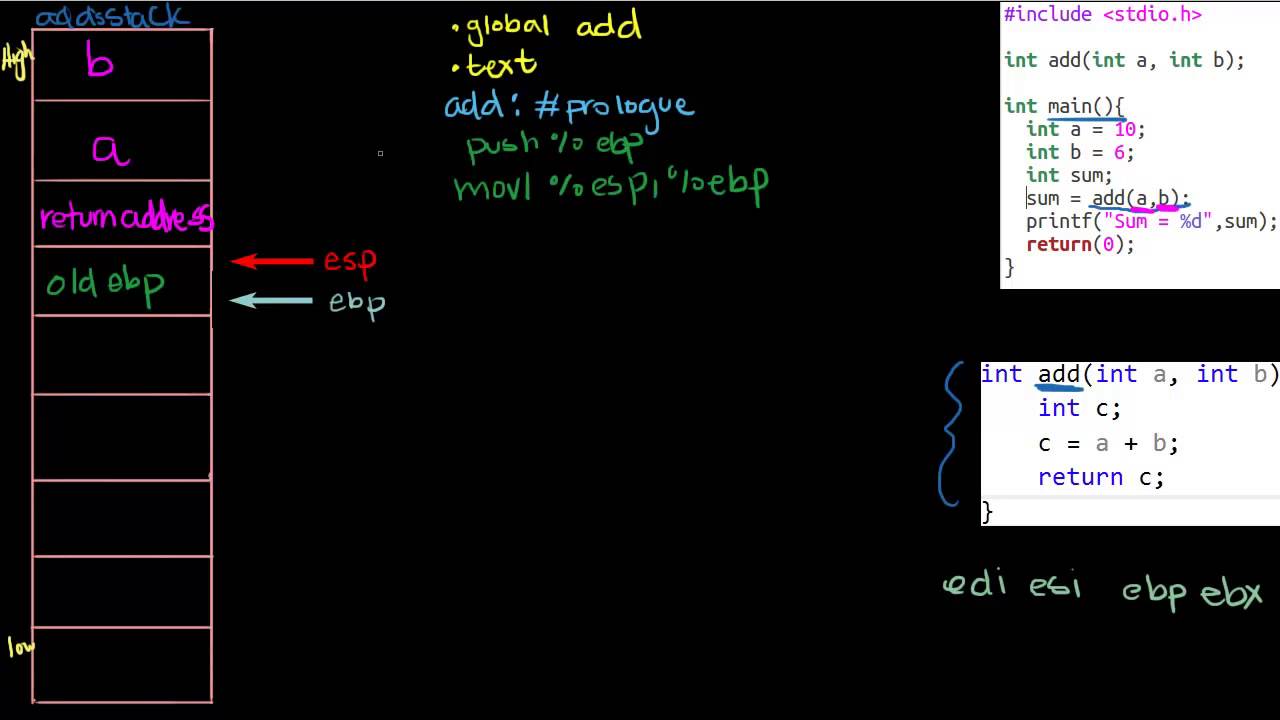 add's stack
High
b
a
return address
old ebp
low
esp
ebp
.global add
.text
add: #prologue
push %ebp
movl %esp, %ebp
#include <stdio.h>
int add(int a, int b);
int main(){
int a = 10;
int b = 6;
int sum;
sum = add(a,b);
printf("Sum = %d",sum);
return(0);
}
int add(int a, int b)
int c;
c = a + b;
return c;
}
edi esi ebp ebx